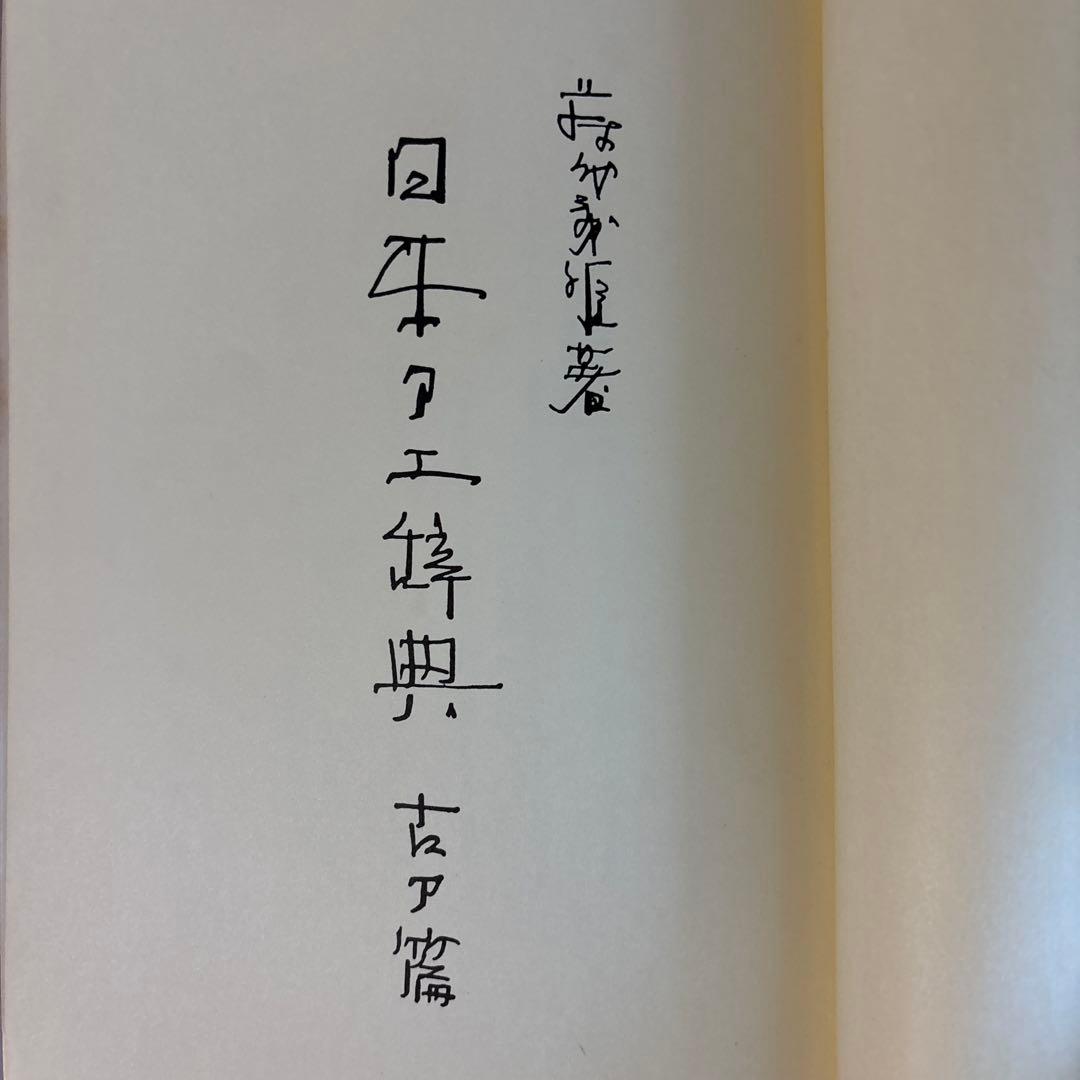 藤代義雄著
日本刀工辞典 古刀篇